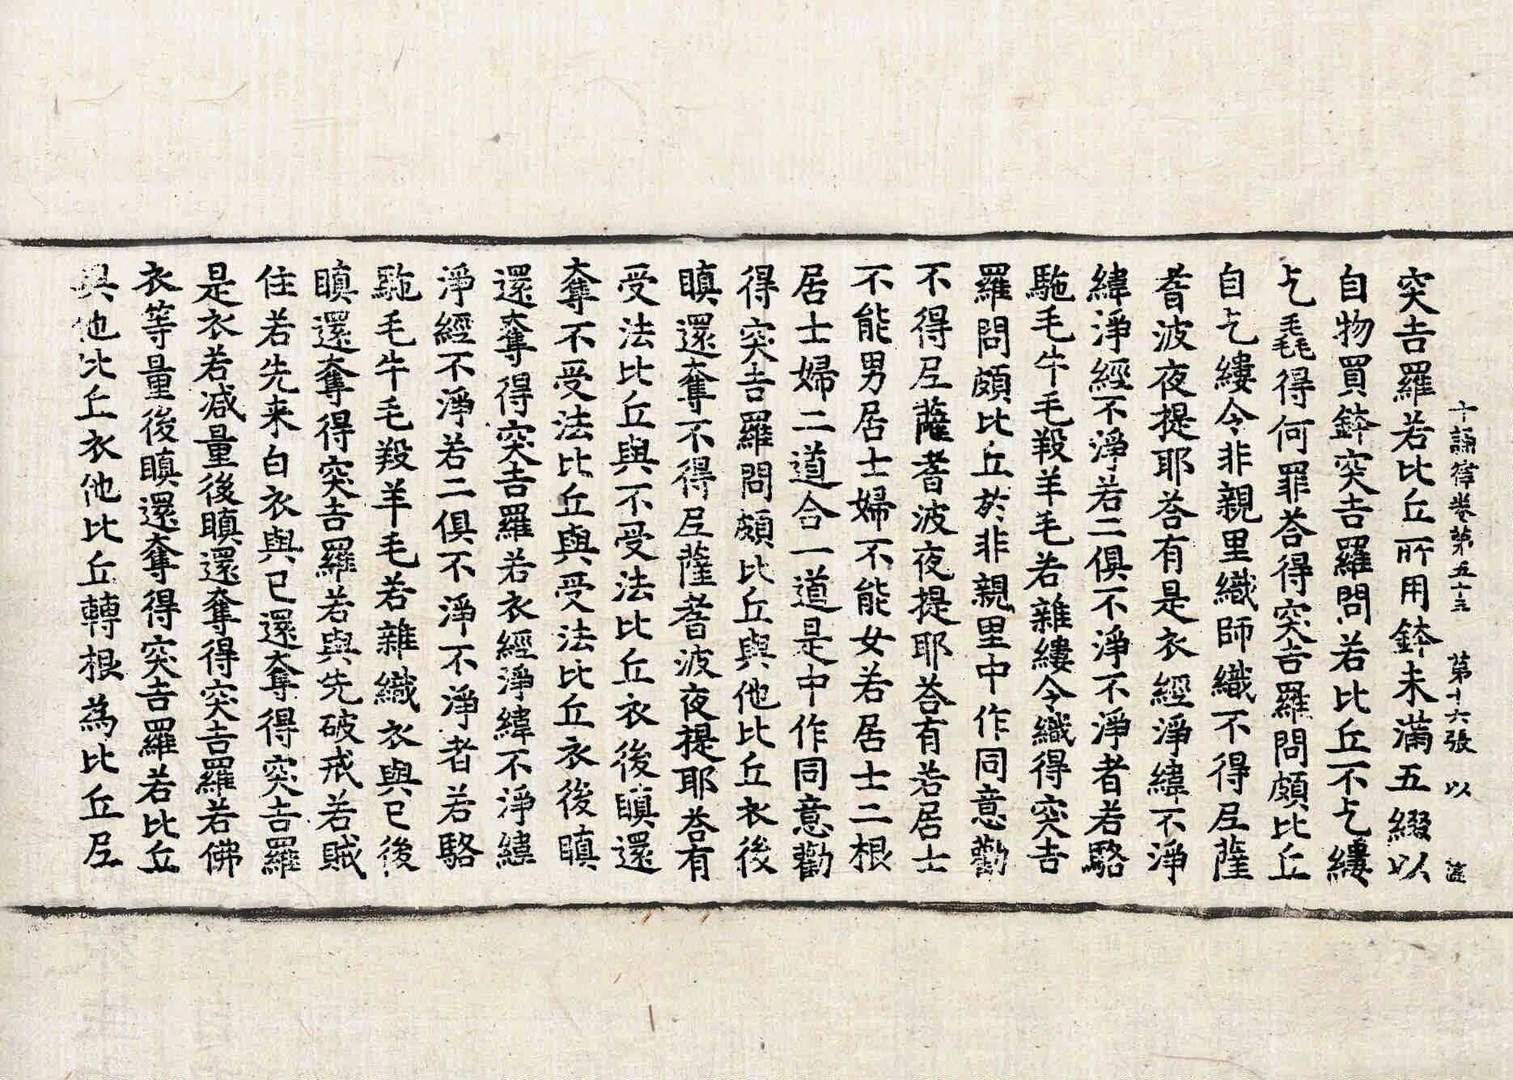 十誦律卷第五十三 第十六張 以
突吉羅若比丘所用鉢未滿五綴以
自物買鉢突吉羅問若比丘不乞縷
乞毳得何罪荅得突吉羅問頗比丘
自乞縷令非親里織師織不得尼薩
耆波夜提耶荅有是衣經淨緯不淨
緯淨經不淨若二俱不淨不淨者若駱
駞毛牛毛羖羊毛若雜縷令織得突吉
羅問頗比丘於非親里中作同意勸
不得尼薩耆波夜提耶荅有若居士
不能男居士婦不能女若居士二根
居士婦二道合一道是中作同意勸
得突吉羅問頗比丘與他比丘衣後
瞋還奪不得尼薩耆波夜提耶荅有
受法比丘與不受法比丘衣後瞋還
奪不受法比丘與受法比丘衣後瞋
還奪得突吉羅若衣經淨緯不淨緯
淨經不淨若二俱不淨不淨者若駱
駞毛牛毛羖羊毛若雜織衣與已後
瞋還奪得突吉羅若與先破戒若賊
住若先来白衣與已還奪得突吉羅
是衣若减量後瞋還奪得突吉羅若佛
衣等量後瞋還奪得突吉羅若比丘
與他比丘衣他比丘轉根為比丘尼